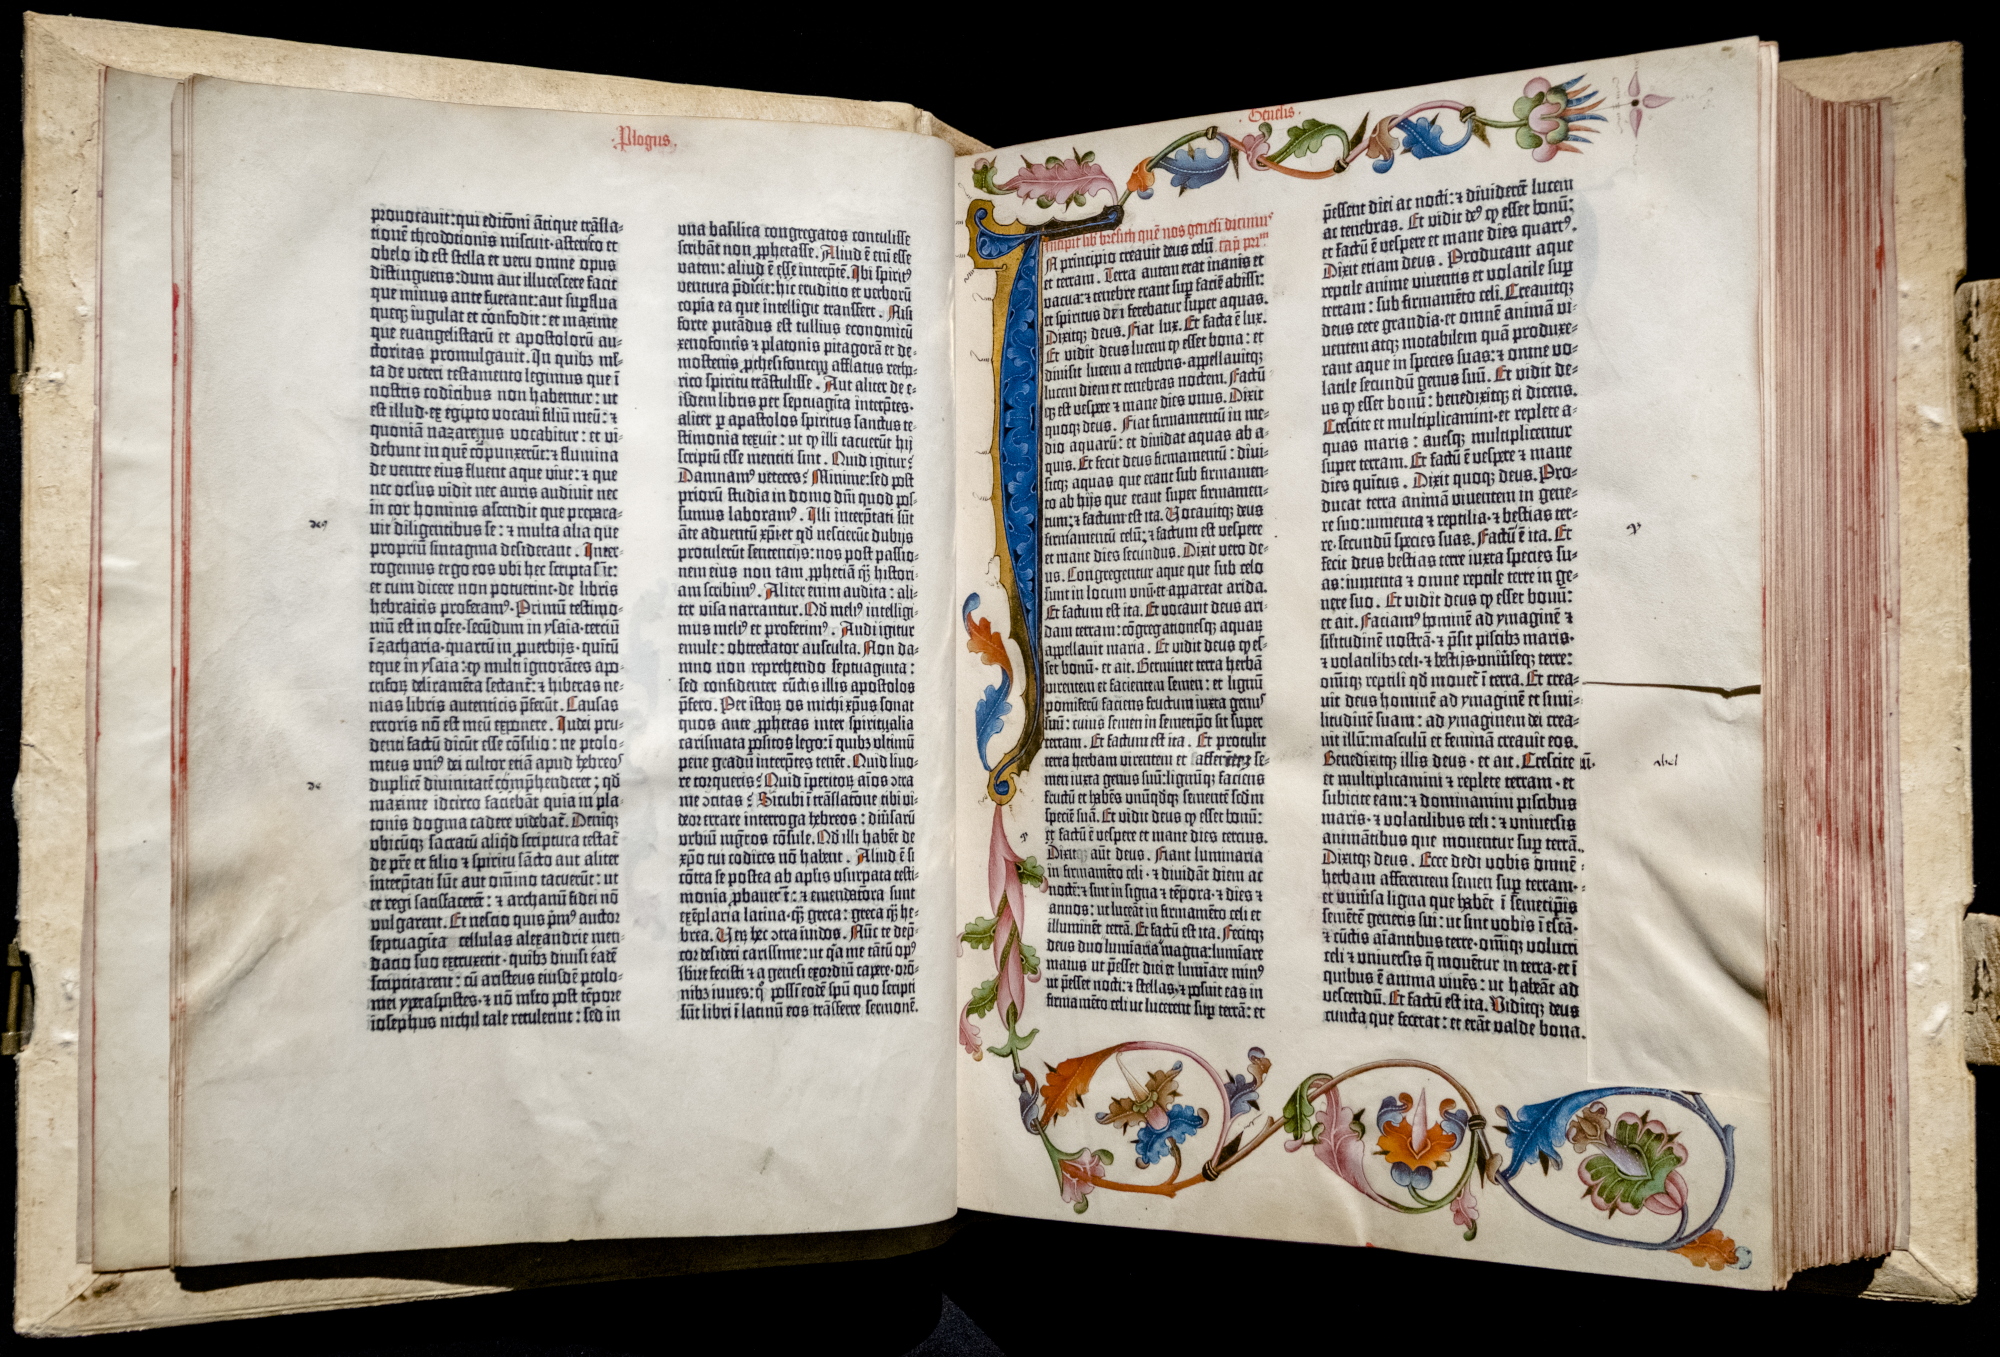 Plogus
prouocauit: qui editõni ãtique trãsla-
tionẽ theodotionis miscuit· asterisco et
obelo id est stella et veru omne opus
distinguens: dum aut illucescere facit
que minus ante fuerant: aut suꝑflua
queqꝫ iugulat et confodit: et maxime
que euangelistarũ et apostolorũ au-
ctoritas promulgauit. In quibꝫ ml-
ta de veteri testamento legimus que ĩ
nostris codicibus non habentur: ut
est illud· ex egipto vocaui filiũ meũ: ⁊
quoniã nazareus vocabitur: et vi-
debunt in quẽ cõpunxerũt: ⁊ flumina
de ventre eius fluent aque viue: ⁊ que
nec oculus vidit nec auris audiuit nec
in cor hominis ascendit que prepara-
uit diligentibus se: ⁊ multa alia que
propriũ sintagma desiderant. Inter-
rogemus ergo eos vbi hec scripta sĩt:
et cum dicere non potuerint· de libris
hebraicis proferamꝰ. Primũ testimo-
niũ est in osee· secũdum in ysaia· terciũ
ĩ zacharia· quartũ in ꝓuerbijs· quĩtũ
eque in ysaia: ꝙ multi ignorãtes apo-
crifoꝝ deliramẽta sectant: ⁊ hiberas ne-
nias libris autenticis p̃ferũt. Causas
erroris nõ est meũ exponere. Iudei pru-
denti factũ dicũt esse cõsilio: ne ptolo-
meus vniꝰ dei cultor etiã apud hebreos
duplicẽ diuinitatẽ comp̃henderet: qđ
maxime idcirco faciebãt quia in pla-
tonis dogma cadere videbat̃. Deniqꝫ
vbicũqꝫ sacratũ aliqđ scriptura testat̃
de p̃re et filio ⁊ spiritu sãcto aut aliter
interp̃tati sũt aut om̃ino tacuerũt: ut
et regi satisfacerẽt: ⁊ archanũ fidei nõ
vulgarent. Et nescio quis prim̃ꝰ auctor
septuagĩta cellulas alexandrie men-
dacio suo extruxerit· quibꝫ diuisi eadẽ
scriptitarent: cũ aristeus eiusdẽ ptolo-
mei yperaspistes· ⁊ nõ mĩto post tẽpore
iosephus nichil tale retulerint: sed in
una basilica congregatos contulisse
scribãt non ꝓphetasse. Aliud ẽ enĩ esse
vatem: aliud ẽ esse interp̃tẽ. Ibi spiritꝰ
ventura p̃dicit: hic eruditio et verborũ
copia ea que intelligit transfert. Nisi
forte putãdus est tullius economicũ
xenofontis ⁊ platonis pitagorã et de-
mostenis ꝓthesifontem afflatus reth-
rico spiritu trãstulisse. Aut aliter de e-
isdem libris per septuagĩta interp̃tes·
aliter ꝑ apostolos spiritus sanctus te-
stimonia texuit: ut ꝙ illi tacuerũt hij
scriptũ esse mentiti sint. Quid igitur?
Damnamꝰ veteres? Minime: sed post
priorũ studia in domo dñi quod pos-
sumus laboramꝰ. Illi interp̃tati sũt
ãte aduentũ xp̃i· et qđ nescierũt dubijs
protulerũt sentencijs: nos post passio-
nem eius non tam ꝓphetiã q̃ꝫ histori-
am scribimꝰ. Aliter enim audita: ali-
ter visa narrantur. Qđ meliꝰ intelligi-
mus meliꝰ et proferimꝰ. Audi igitur
emule: obtrectator ausculta. Non da-
mno non reprehendo septuaginta:
sed confidenter cũctis illis apostolos
p̃fero. Per istoꝝ os michi xp̃us sonat
quos ante ꝓphetas inter spiritualia
carismata positos lego: ĩ quibꝫ vltimũ
pene gradũ interp̃tes tenẽt. Quid liuo-
re torqueris? Quid ĩperitoꝝ aĩos ↄtra
me ↄcitas? Sicubi ĩ trãslatõne tibi vi-
deoꝛ errare interroga hebreos: diũsarũ
vrbiũ mg̃ros cõsule. Qđ illi habẽt de
xp̃o tui codices nõ habent. Aliud ẽ si
cõtra se postea ab apl̃is vsurpata testi-
monia ꝓbauer̃t: ⁊ emendatiora sunt
exẽplaria latina· q̃ꝫ greca: greca q̃ꝫ he-
brea. Veꝝ hec ↄtra ĩuidos. Nũc te dep̃-
coꝛ desideri carissime: ut q̃a me tãtũ opꝰ
sbire fecisti ⁊ a genesi exordiũ capere· orõ-
nibꝫ iuues: q̊ possĩ eodẽ spũ quo scripti
sũt libri ĩ latinũ eos trãsferre sermonẽ.
Genesis
Incipit lib̃ bresith quẽ nos genesĩ dicimꝰ
In principio creauit deus celũ cap̃ pri᷑ᵐ
et terram. Terra autem erat inanis et
vacua: ⁊ tenebre erant suꝑ faciẽ abissi:
et spiritus dñi ferebatur super aquas.
Dixitqꝫ deus. Fiat lux. Et facta ẽ lux.
Et vidit deus lucem ꝙ esset bona: et
diuisit lucem a tenebris· appellauitqꝫ
lucem diem et tenebras noctem. Factũ-
qꝫ est vesꝑe ⁊ mane dies vnus. Dixit
quoqꝫ deus. Fiat firmamentũ in me-
dio aquarũ: et diuidat aquas ab a-
quis. Et fecit deus firmamentũ: diui-
sitqꝫ aquas que erant sub firmamen-
to ab hijs que erant super firmamen-
tum: ⁊ factum est ita. Vocauitqꝫ deus
firmamentũ celũ: ⁊ factum est vespere
et mane dies secundus. Dixit vero de-
us. Congregentur aque que sub celo
sunt in locum vnũ· et appareat arida.
Et factum est ita. Et vocauit deus ari-
dam terram: cõgregationesqꝫ aquaꝝ
appellauit maria. Et vidit deus ꝙ es-
set bonũ· et ait. Germinet terra herbã
virentem et facientem semen: et lignũ
pomiferũ faciens fructum iuxta genꝰ
suũ: cuius semen in semetip̃o sit super
terram. Et factum est ita. Et protulit
terra herbam virentem et afferẽtẽ se-
men iuxta genus suũ: lignũqꝫ faciens
fructũ et habẽs vnũqđqꝫ sementẽ scđm
speciẽ suã. Et vidit deus ꝙ esset bonũ:
et factũ ẽ vespere et mane dies tercius.
Dixitqꝫ aũt deus. Fiant luminaria
in firmamẽto celi· ⁊ diuidãt diem ac
noctẽ: ⁊ sint in signa ⁊ tẽpora· ⁊ dies ⁊
annos: ut luceãt in firmamẽto celi et
illuminẽt terrã. Et factũ est ita. Fecitqꝫ
deus duo lumĩaria magna: lumĩare
maius ut p̃esset diei et lumĩare minꝰ
ut p̃esset nocti: ⁊ stellas· ⁊ posuit eas in
firmamẽto celi ut lucerent suꝑ terrã: et
p̃essent diei ac nocti: ⁊ diuiderẽt lucem
ac tenebras. Et vidit deꝰ ꝙ esset bonũ:
et factũ ẽ vespere et mane dies quartꝰ.
Dixit etiam deus. Producant aque
reptile anime viuentis et volatile suꝑ
terram: sub firmamẽto celi. Creauitqꝫ
deus cete grandia· et omnẽ animã vi-
uentem atqꝫ motabilem quã produxe-
rant aque in species suas: ⁊ omne vo-
latile secundũ genus suũ. Et vidit de-
us ꝙ esset bonũ: benedixitqꝫ ei dicens.
Crescite et multiplicamini· et replete a-
quas maris: auesqꝫ multiplicentur
super terram. Et factũ ẽ vesꝑe ⁊ mane
dies quĩtus. Dixit quoqꝫ deus. Pro-
ducat terra animã viuentem in gene-
re suo: iumenta ⁊ reptilia· ⁊ bestias ter-
re· secundũ species suas. Factũ ẽ ita. Et
fecit deus bestias terre iuxta species su-
as: iumenta ⁊ omne reptile terre in ge-
nere suo. Et vidit deus ꝙ esset bonũ:
et ait. Faciamꝰ hominẽ ad ymaginẽ ⁊
similitudinẽ nostrã· ⁊ p̃sit piscibꝫ maris·
⁊ volatilibꝫ celi· ⁊ bestijs· vniũseqꝫ terre:
om̃iqꝫ reptili qđ mouet̃ ĩ terra. Et crea-
uit deus hominẽ ad ymaginẽ et simi-
litudinẽ suam: ad ymaginem dei crea-
uit illũ: masculũ et feminã creauit eos.
Benedixitqꝫ illis deus· et ait. Crescite
et multiplicamini ⁊ replete terram· et
subicite eam: ⁊ dominamini piscibus
maris· ⁊ volatilibus celi: ⁊ vniuersis
animãtibus que mouentur suꝑ terrã.
Dixitqꝫ deus. Ecce dedi vobis omnẽ
herbam afferentem semen suꝑ terram·
et vniũsa ligna que habẽt ĩ semetip̃is
semẽtẽ generis sui: ut sint vobis ĩ escã·
⁊ cũctis aĩantibus terre· om̃iqꝫ volucri
celi ⁊ vniuersis q̃ mouẽtur in terra· et ĩ
quibus ẽ anima viuẽs: ut habeãt ad
vescendũ. Et factũ est ita. Viditqꝫ deus
cuncta que fecerat: et erãt valde bona.